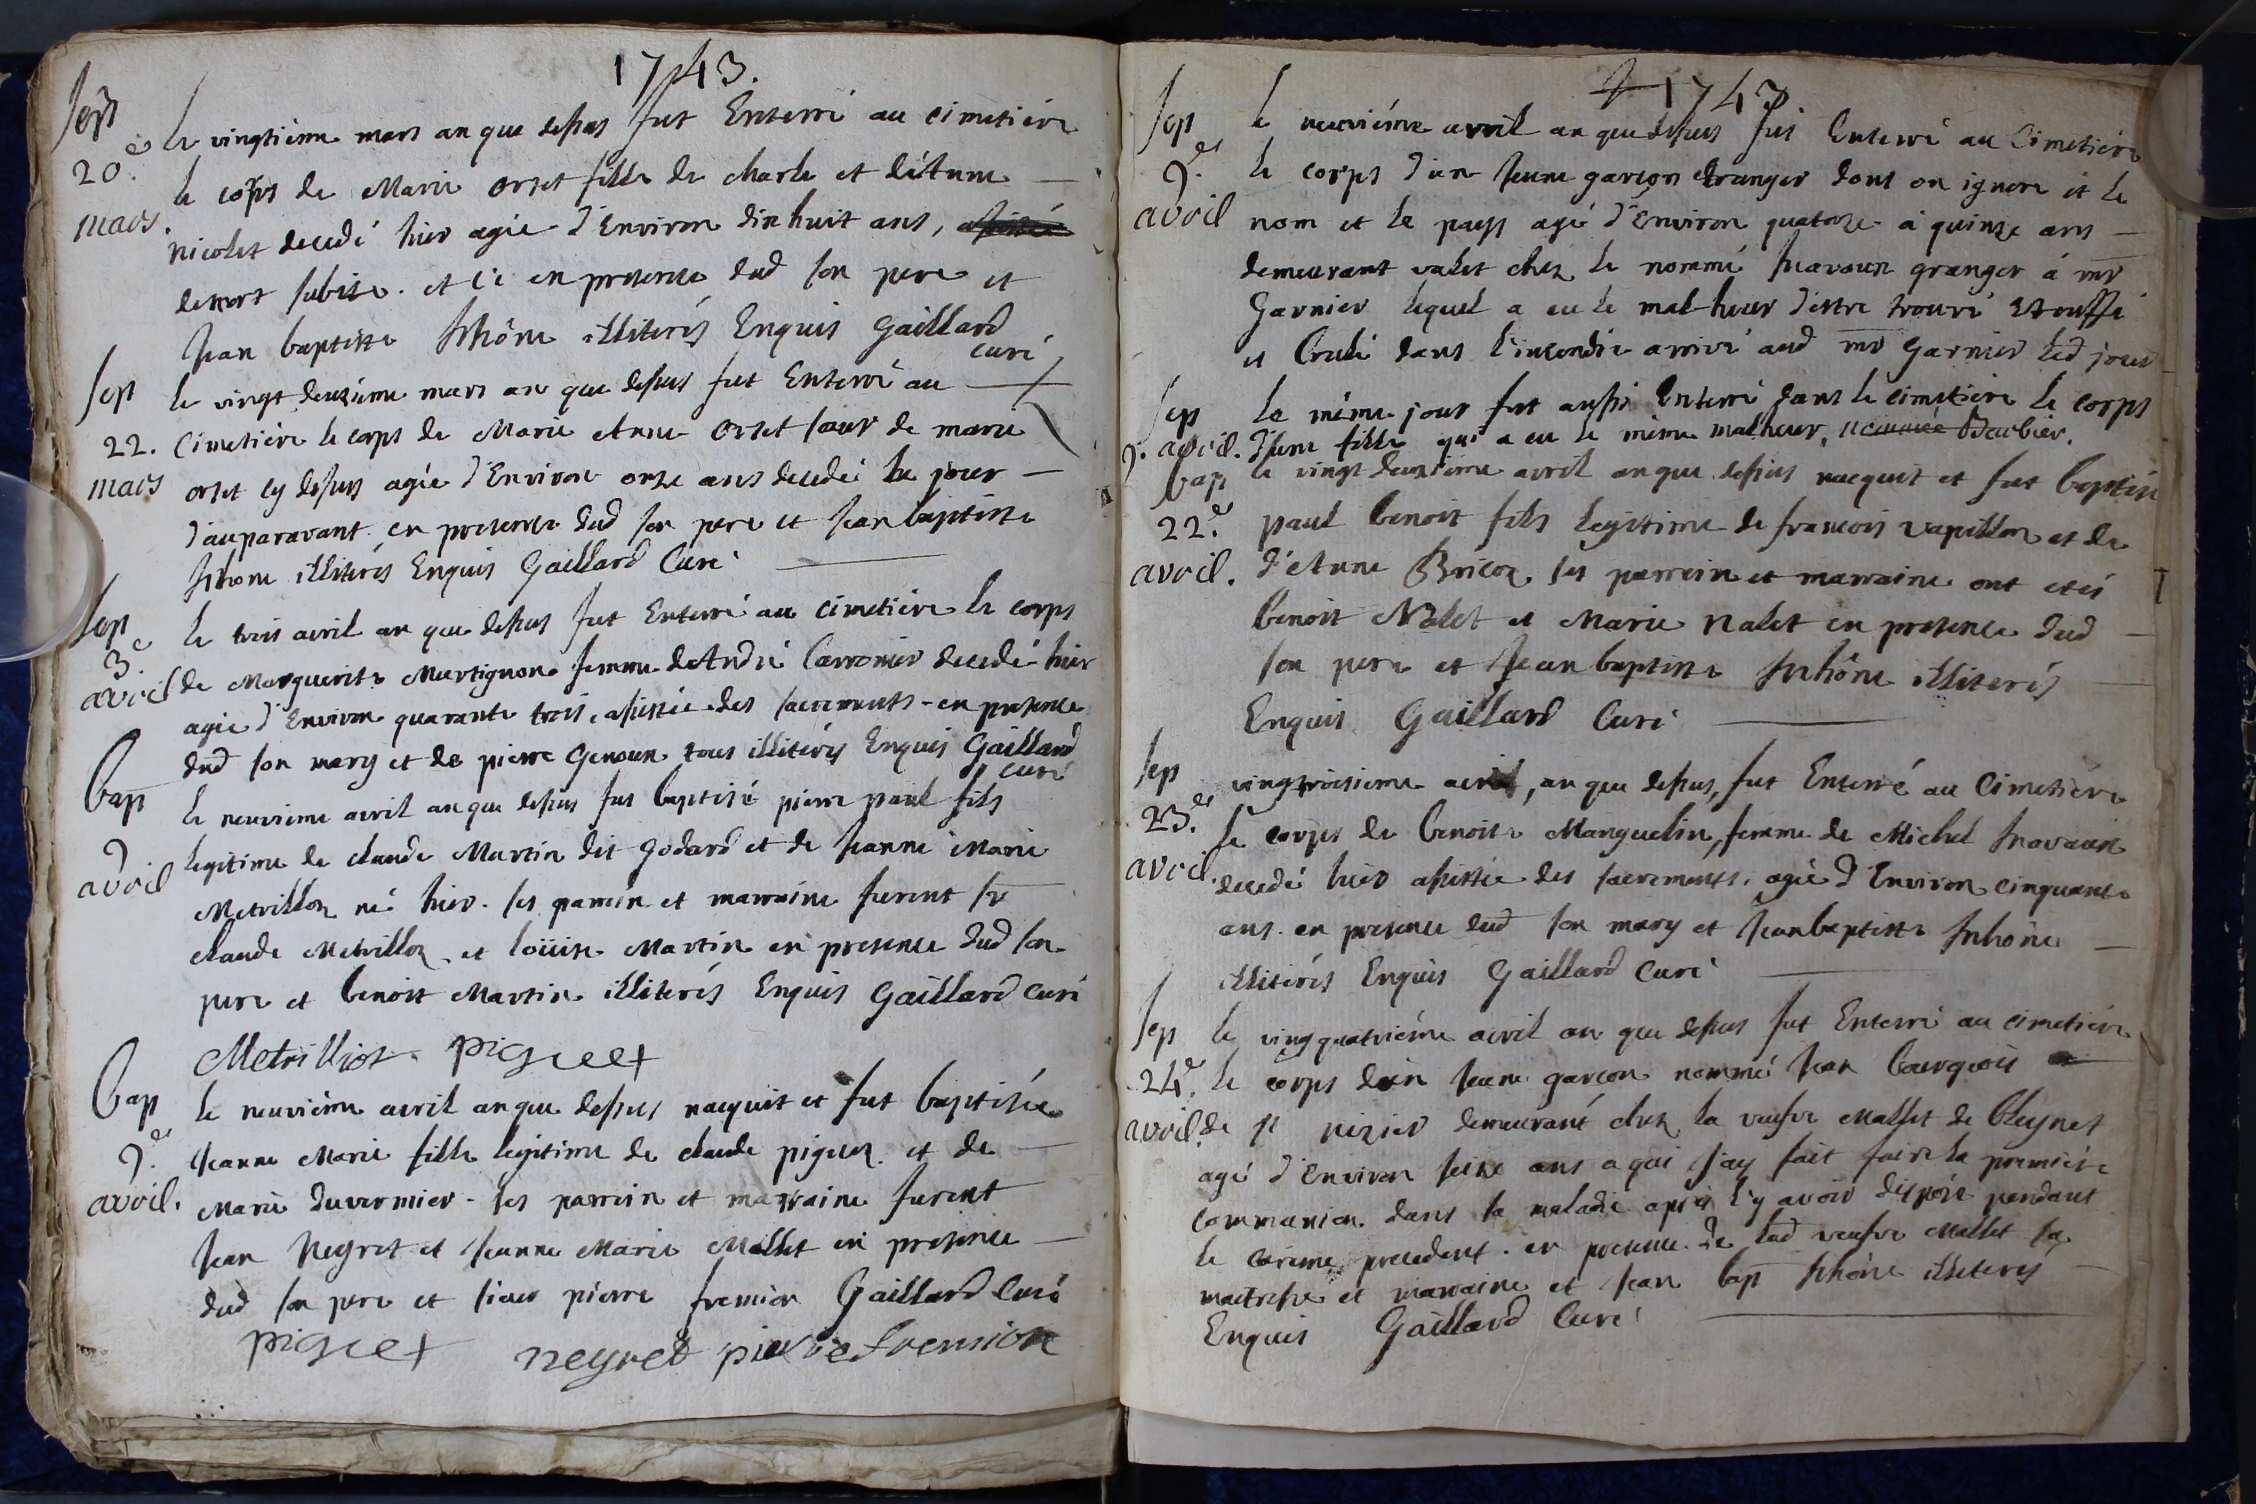 1743.
Sep le vingtiéme mars an que dessus fut Enterré au cimetiére
20.e le corps de Marie orset fille de charle et d'Anne
mars. nicolet decedé hier agée d'Environ dix huit ans,
de mort subite. et ce en presence dud son pere et
Jean baptiste illiterés Enquis Gaillard
curé
Sep le vingt deuxiéme mars an que dessus fut Enterré au
22. Cimetiére le corps de Marie Anne orset sœur de marie
mars orset cy dessus agée d'Environ onze ans decedée le jour
d'auparavant en presence dud son pere et Jean baptiste
illiterés Enquis Gaillard Curé
Sep le trois avril an que dessus fut Enterré au cimetiére le corps
3.e
avril de Marguerite Martignon femme de André Carronier decedé hier
agée d'Environ quarante trois, assistée des sacrements - en presence
dud son mary et de pierre Genoun tous illiterés Enquis Gaillard
curé
Bap le neuviéme avril an que dessus fut baptisé pierre paul fils
9 legitime de claude Martin dit Godard et de Jeanne Marie
avril Metrillon né hier. ses parrein et marraine furent sr
claude Metrillon et loüise Martin en presence dud son
pere et benoit Martin illiterés Enquis Gaillard curé
Metrilliot piguet
Bap le neuviéme avril an que dessus nacquit et fut baptisée
9.e Jeanne Marie fille legitime de claude piguet et de
avril. Marie duvernier - ses parrein et marraine furent
Jean Neyret et Jeanne Marie Mallet en presence
dud son pere et sieur pierre fremion Gaillard Curé
piguet neyret pierre fremion
1743.
Sep le neuviéme avril an que dessus fut Enterré au Cimetiére
9.e le corps d'un Jeune garcon etranger dont on ignore et le
avril nom et le pays agé d'Environ quatorze a quinze ans
demeurant valet chez le nommé granger á mr
Garnier lequel a eu le malheur d'estre trouvé Etouffé
et brulé dans l'incendie arrivé aud mr Garnier led jour
Sep Le méme jour fut aussi Enterré dans le cimetiére le corps
9. avril. d'une fille qui a eu le méme malheur, nommée Barbier.
bap le vingt deuxiéme avril an que dessus nacquit et fut baptisé
22.e paul benoit fils legitime de francois vapillon et de
avril. d'Anne Bricon ses parrein et marraine ont etés
benoit Nalet et Marie nalet en presence dud
son pere et Jean baptiste illiterés
Enquis Gaillard Curé
Sep vingtroisieme avril, an que dessus, fut Enterré au Cimetiére
23.e le corps de benoite Manguelin, femme de Michel
avril. decedé hier assistée des sacrements, agée d'Environ cinquante
ans en presence dud son mary et Jean baptiste
illiterés Enquis Gaillard Curé
Sep le vingquatriéme avril an que dessus fut Enterré au cimetiére
24.e le corps d'un Jeune garcon nommé Jean bourgeois
avril. de st nizier demeurant chez la veufve Mallet de
agé d'Environ seize ans a qui j'ay fait faire la premiére
communion dans sa maladie aprés l'y avoir disposé pendant
le carême precedent. en presence de lad veufve Mallet sa
maitresse et marraine et Jean bap illiterés
Enquis Gaillard Curé